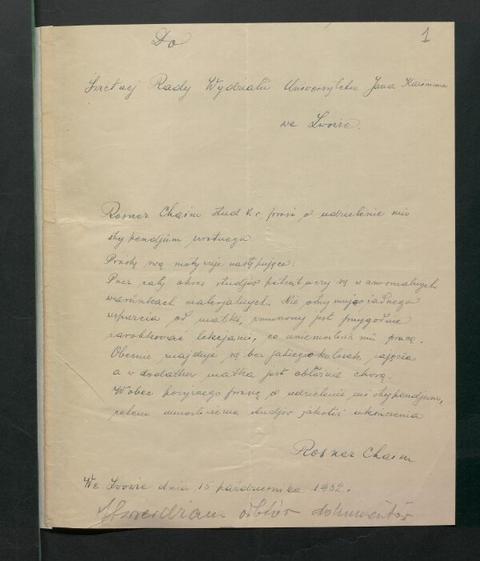 Do
1
Rady Wydziału Uniwersytetu Jana Kazimierza
we Lwowie.
Rosner Chaim stud. prosi o udzielenie mu
stypendjum zwrotnego
Prośbę swą motywuje następująco:
Przez cały okres studjów petent uczy się w anormalnych
warunkach materjalnych. Nie otrzymując żadnego
wsparcia od matki, zmuszony jest przygodnie
zarobkować lekcjami, co uniemożliwia mu pracę.
Obecnie znajduje się bez jakiegokolwiek zajęcia
a w dodatku matka jest obłożnie chorą.
Wobec powyższego proszę o udzielenie mi stypendjum,
celem umożliwienia studjów ukończenia
Rosner Chaim
We Lwowie dnia 15 października 1932.
odbiór dokumentów